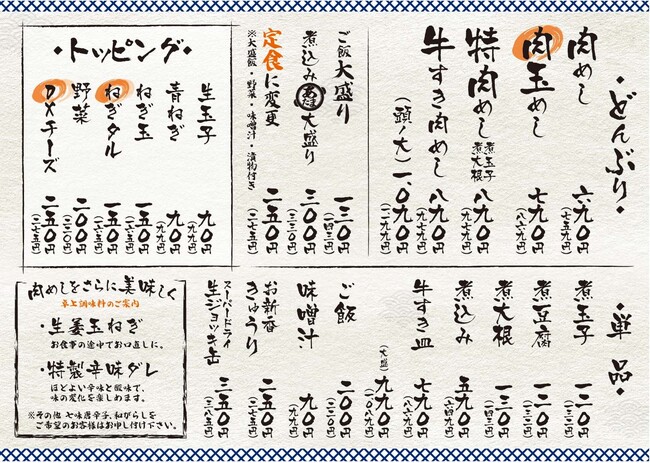 ・どんぶり・
肉めし 六九〇円(七五九円)
肉玉めし 七九〇円(八六九円)
特肉めし 煮玉子 煮大根 八九〇円(九七九円)
牛すき肉めし 八九〇円(九七九円)
(頭ノ大) 一、〇九〇円(一、一九九円)
ご飯大盛り 一三〇円(一四三円)
煮込みあたま大盛り 三〇〇円(三三〇円)
定食に変更 二五〇円(二七五円)
※大盛飯・野菜・味噌汁・漬物付き
・トッピング・
生玉子 九〇円(九九円)
青ねぎ 九〇円(九九円)
ねぎ玉 一五〇円(一六五円)
ねぎタル 一五〇円(一六五円)
野菜 二〇〇円(二二〇円)
DXチーズ 二五〇円(二七五円)
・単品・
煮玉子 一二〇円(一三二円)
煮豆腐 一二〇円(一三二円)
煮大根 一二〇円(一三二円)
煮込み 五九〇円(六四九円)
牛すき皿 七九〇円(八六九円)
(大盛) 九九〇円(一、〇八九円)
ご飯 二〇〇円(二二〇円)
味噌汁 九〇円(九九円)
お新香
きゅうり 二五〇円(二七五円)
スーパードライ
生ジョッキ缶 三五〇円(三八五円)
肉めしをさらに美味しく
卓上調味料のご案内
・生姜玉ねぎ
お食事の途中でお口直しに。
・特製辛味ダレ
ほどよい辛味と酸味で、
味の変化を楽しめます。
※その他 七味唐辛子、和がらしを
ご希望のお客様はお申し付け下さい。